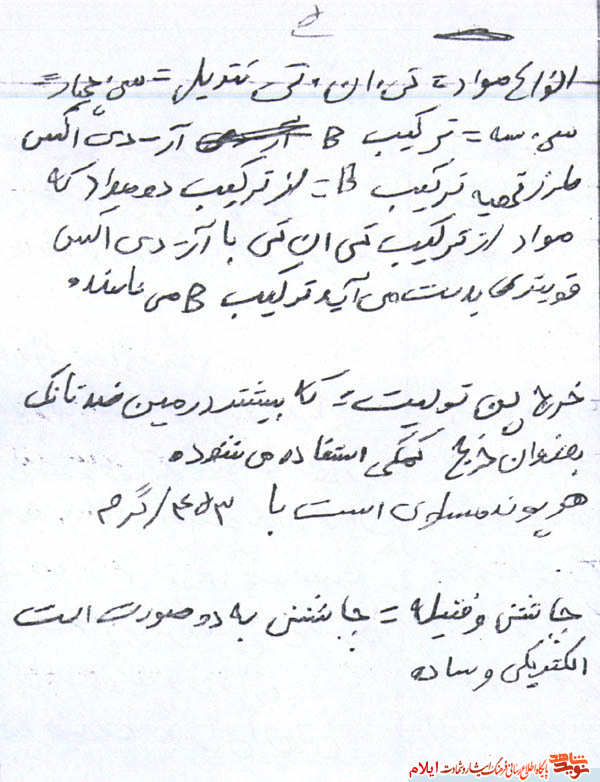 انواع مواد = تی. ان. تی تتریل = سی چهار =
سی. سه = ترکیب B آر-دی اکس
طرز تهیه ترکیب B = از ترکیب دو مواد که
مواد از ترکیب تی ان تی با آر-دی اکس
قویتری بدست می آید ترکیب B می نامند.
خرج پن تولیت = که بیشتر در مین ضد تانک
بعنوان خرج کمکی استفاده می شود.
هر پوند مساوی است با ۴۵۳/گرم
چاشنی و فتیله = چاشنی به دو صورت است
الکتریکی و ساده
نوید شاهد پایگاه اطلاع رسانی فرهنگ ایثار و شهادت ایلام